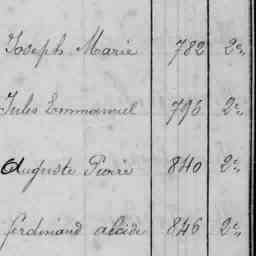 Joseph Marie 782 2e
Jules Emmanuel 796 2e
Auguste Pierre 840 2e
ferdinand alcide 846 2e